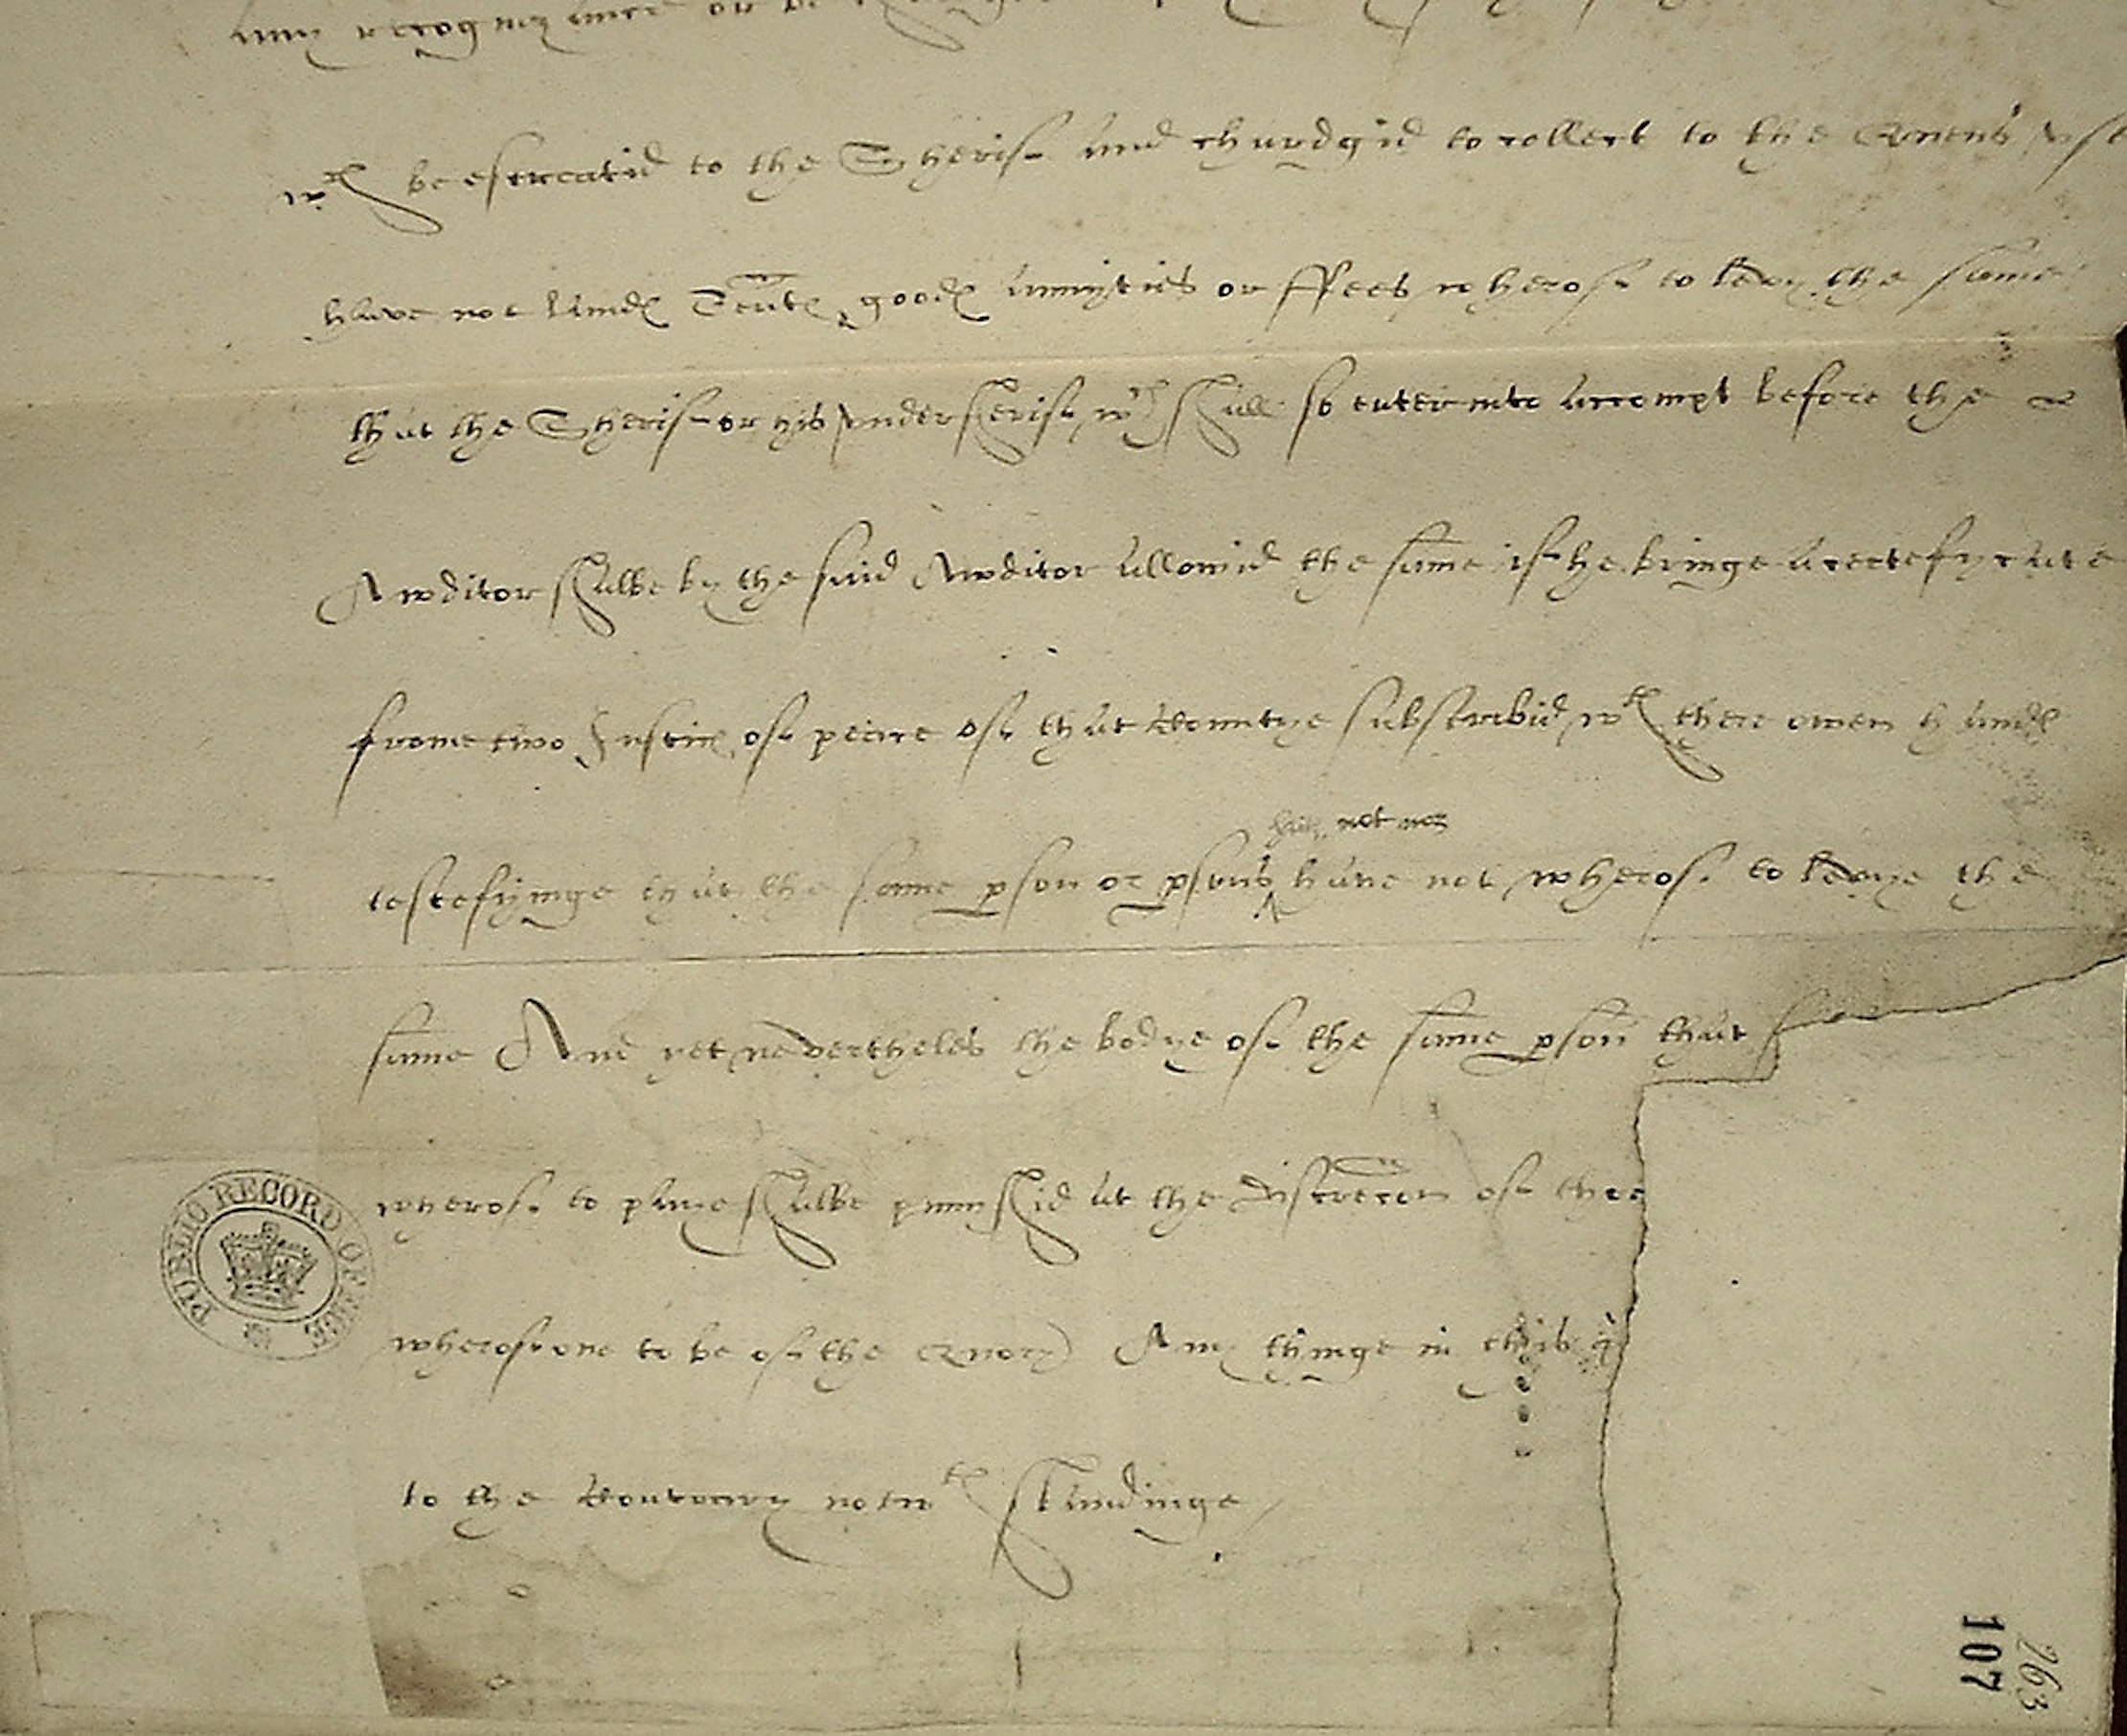 any recognyzance or
wch be estreatid to the Sherif and chardgid to collect to the Quenes use
have not landes Tentes goodes annyties or ffees wherof to levy the same
that the Sherif or his undersherif wch shall so enter into accompt before the
Awditor shalbe by the said Awditor allowid the same if he bringe a certefycate
frome two Justices of peace of that Countye subscribid wth there owen handes
not nor
testefyinge that the same pson or psons have not wherof to levye the
same And yet nevertheles the bodye of the same pson that
wherof to paye shalbe punyshid at the discrecon of thre
wherof one to be of the Quor) Any thinge in this
to the Contrary notwth standinge
PUBLIC RECORD OFFICE
107
263